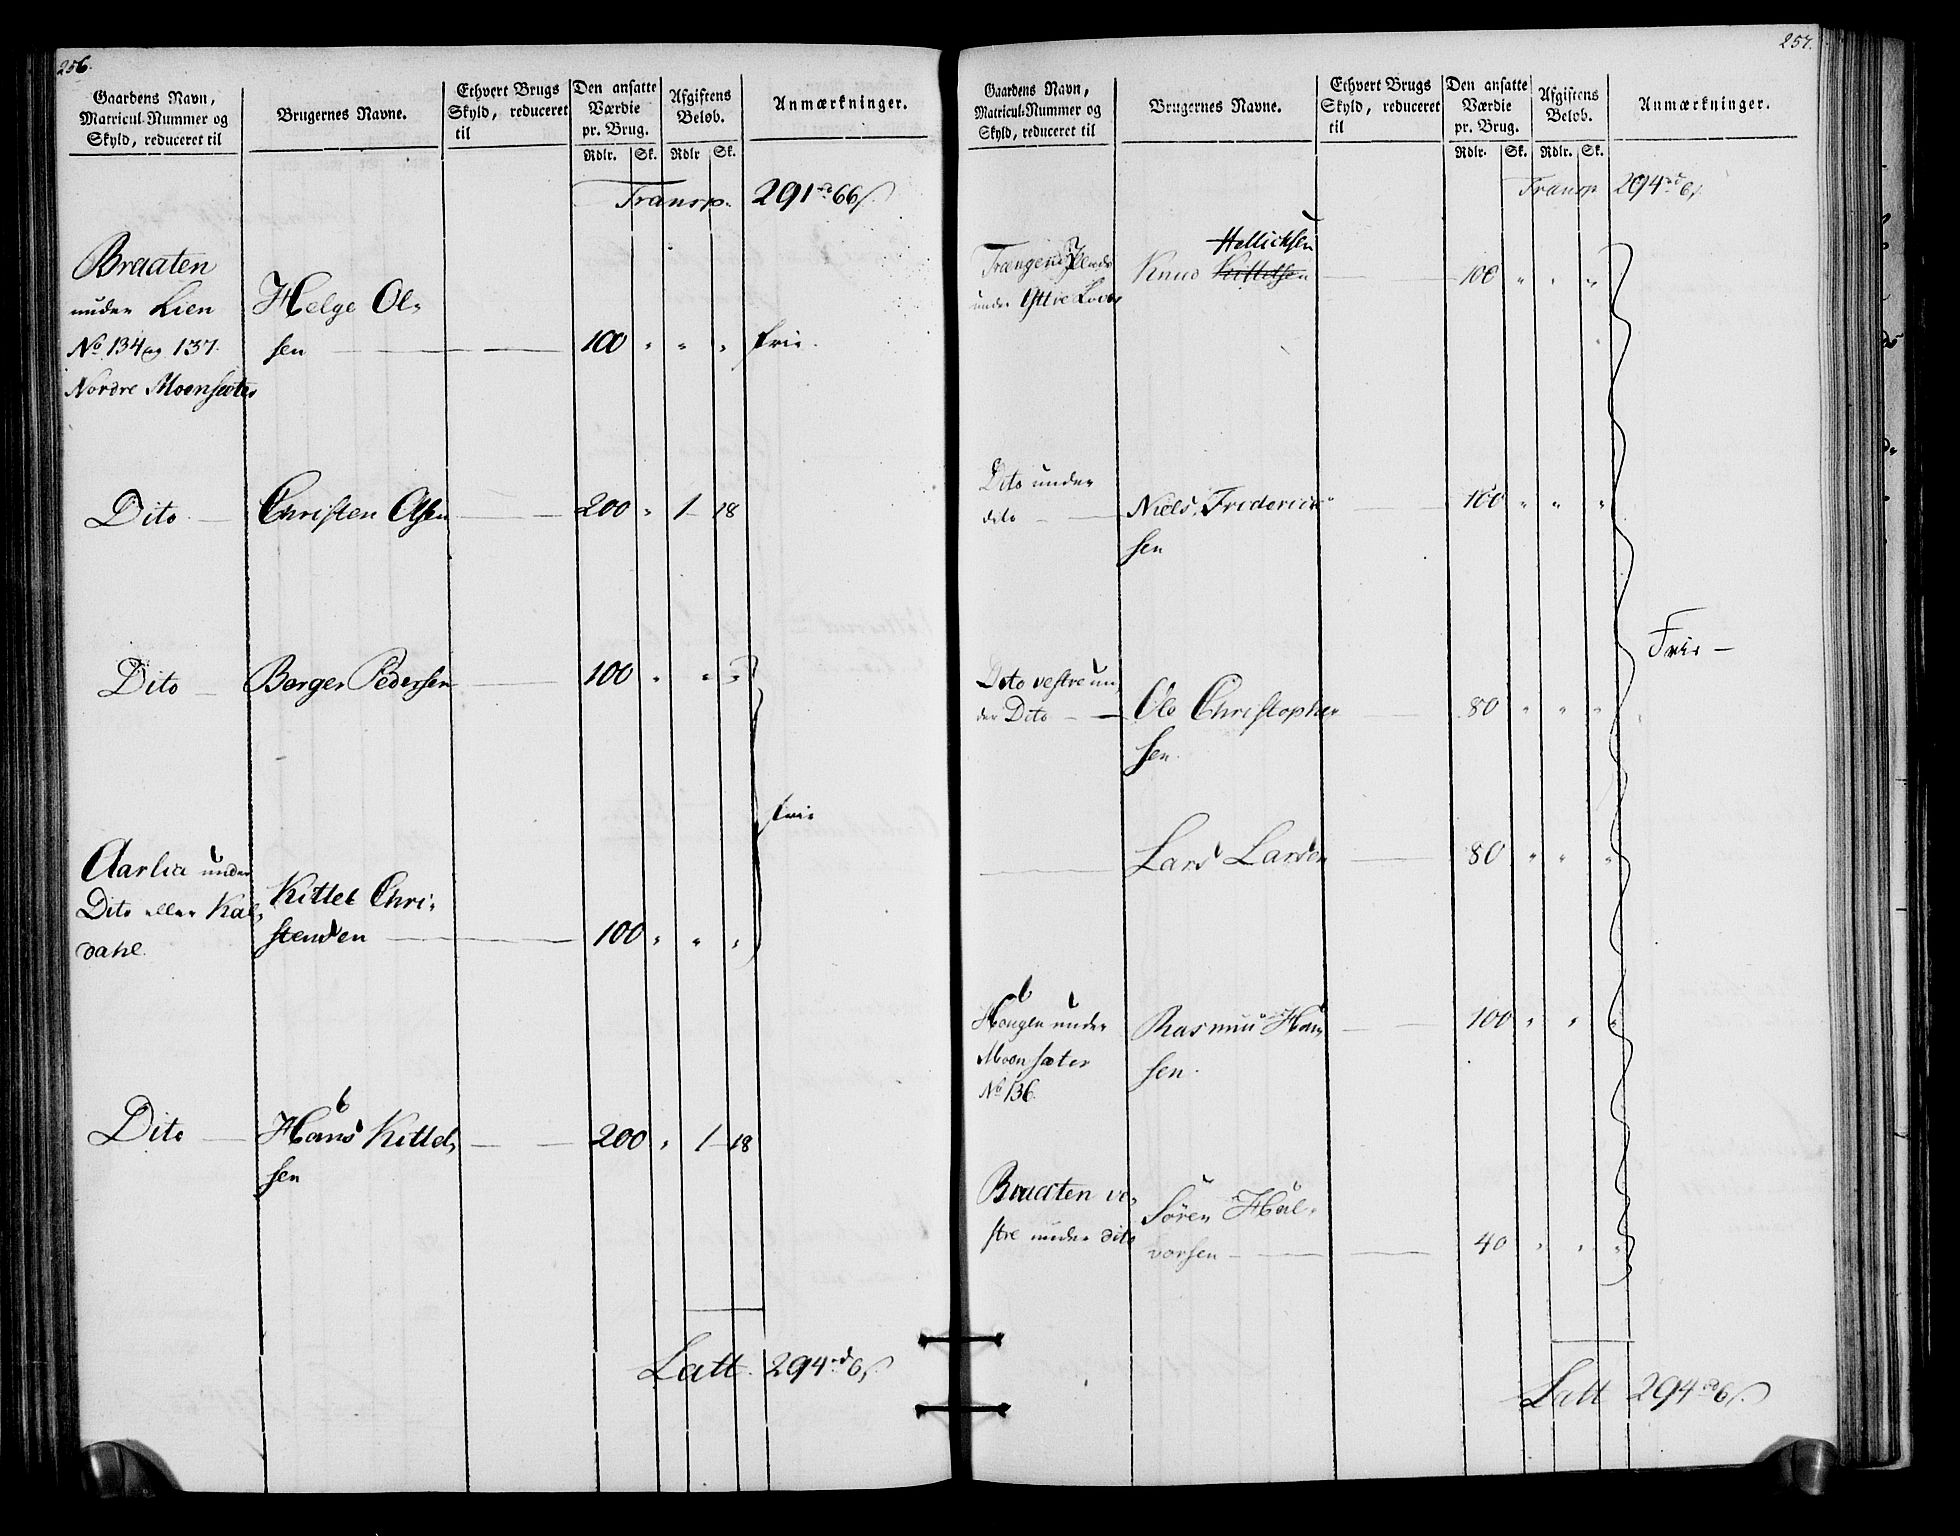 256.
Gaardens Navn, Matricul-Nummer og Skyld, reduceret til
Brugernes Navne.
Ethvert Brugs Skyld, reduceret til
Den ansatte Værdie pr. Brug.
Afgiftens Beløb.
Anmærkninger.
Rdlr. Sk. Rdlr Sk.
Transp. 291 rd 66 s.
Braaten
under Lien Helge Ol-
No 134 og 137. sen 100 " " " frie.
Nordre Moensæter
Dito Christen Olsen 200 " 1 18
Dito Borger Pedersen 100 " " "
frie
Aarlia under
Dito eller Kal- Kittel Chri-
dahl. stensen 100 " " "
Dito Hans Kittel- 200 " 1 18
sen
Latt. 294 rd 6 s.
257.
Gaardens Navn, Matricul-Nummer og Skyld, reduceret til
Brugernes Navne.
Ethvert Brugs Skyld, reduceret til
Den ansatte Værdie pr. Brug.
Afgiftens Beløb.
Anmærkninger.
Rdlr. Sk. Rdlr. Sk.
Transp 294 rd 6 s.
Hellichsen
Trængens Plads Knud Kittelsen 100 " " "
under Yttre
Dito under
dito Niels Friderich- 100 " " "
sen
Frie
Dito vestre un-
der Dito Ole Christopher 80 " " "
sen.
Lars Larsen 80 " " "
Hougen under Rasmus Han- 100 " " "
Moensæter sen.
No 136.
Braaten ve- Sören Hal-
stre under dito vorsen 40 " " "
Latt 294 rd 6 s.